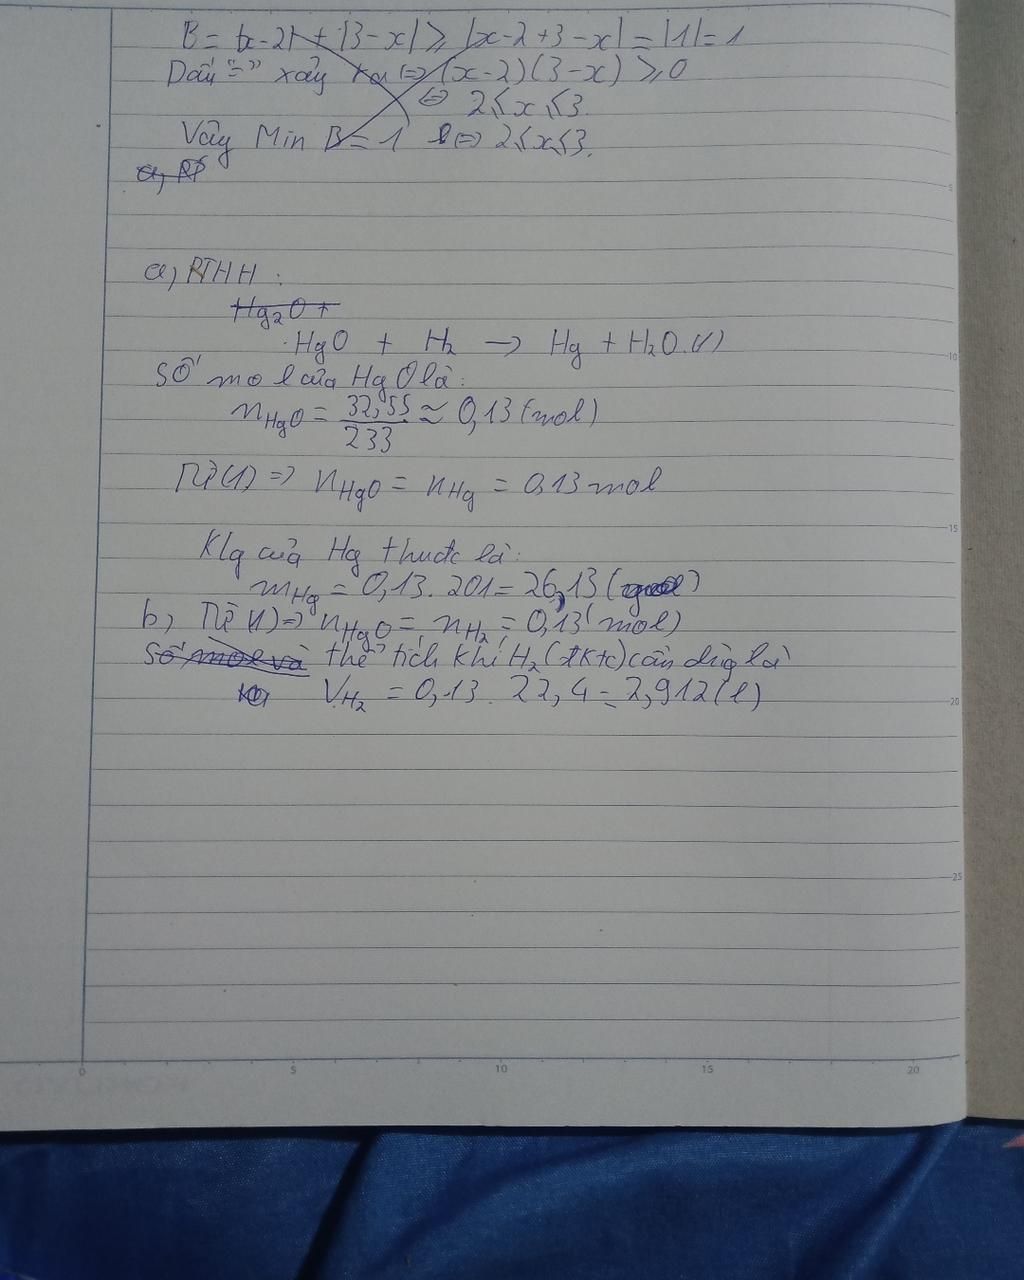 B = |x-2| + |3-x| ≥ |x-2+3-x| = |1| = 1
Dấu "=" xảy ra <=> (x-2)(3-x) ≥ 0
<=> 2≤x≤3.
Vậy Min B = 1 <=> 2≤x≤3.
a, PT
a, PTHH:
Hg₂O +
HgO + H₂ → Hg + H₂O.(1)
Số mol của HgO là:
nHgO = 32,55/233 ≈ 0,13 (mol)
Từ (1) => nHgO = nHg = 0,13 mol
Klg của Hg thuđc là:
mHg = 0,13. 201 = 26,13
b, Từ (1) => nHgO = nH₂ = 0,13 (mol)
Số mol và thể tích khí H₂ (đktc) cần dùg là
VH₂ = 0,13. 22,4 = 2,912 (l)
5
10
15
20
25
0 5 10 15 20